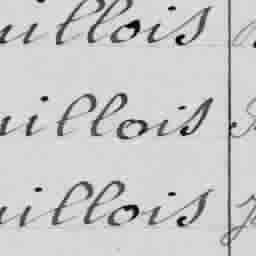 uillois
uillois
uillois